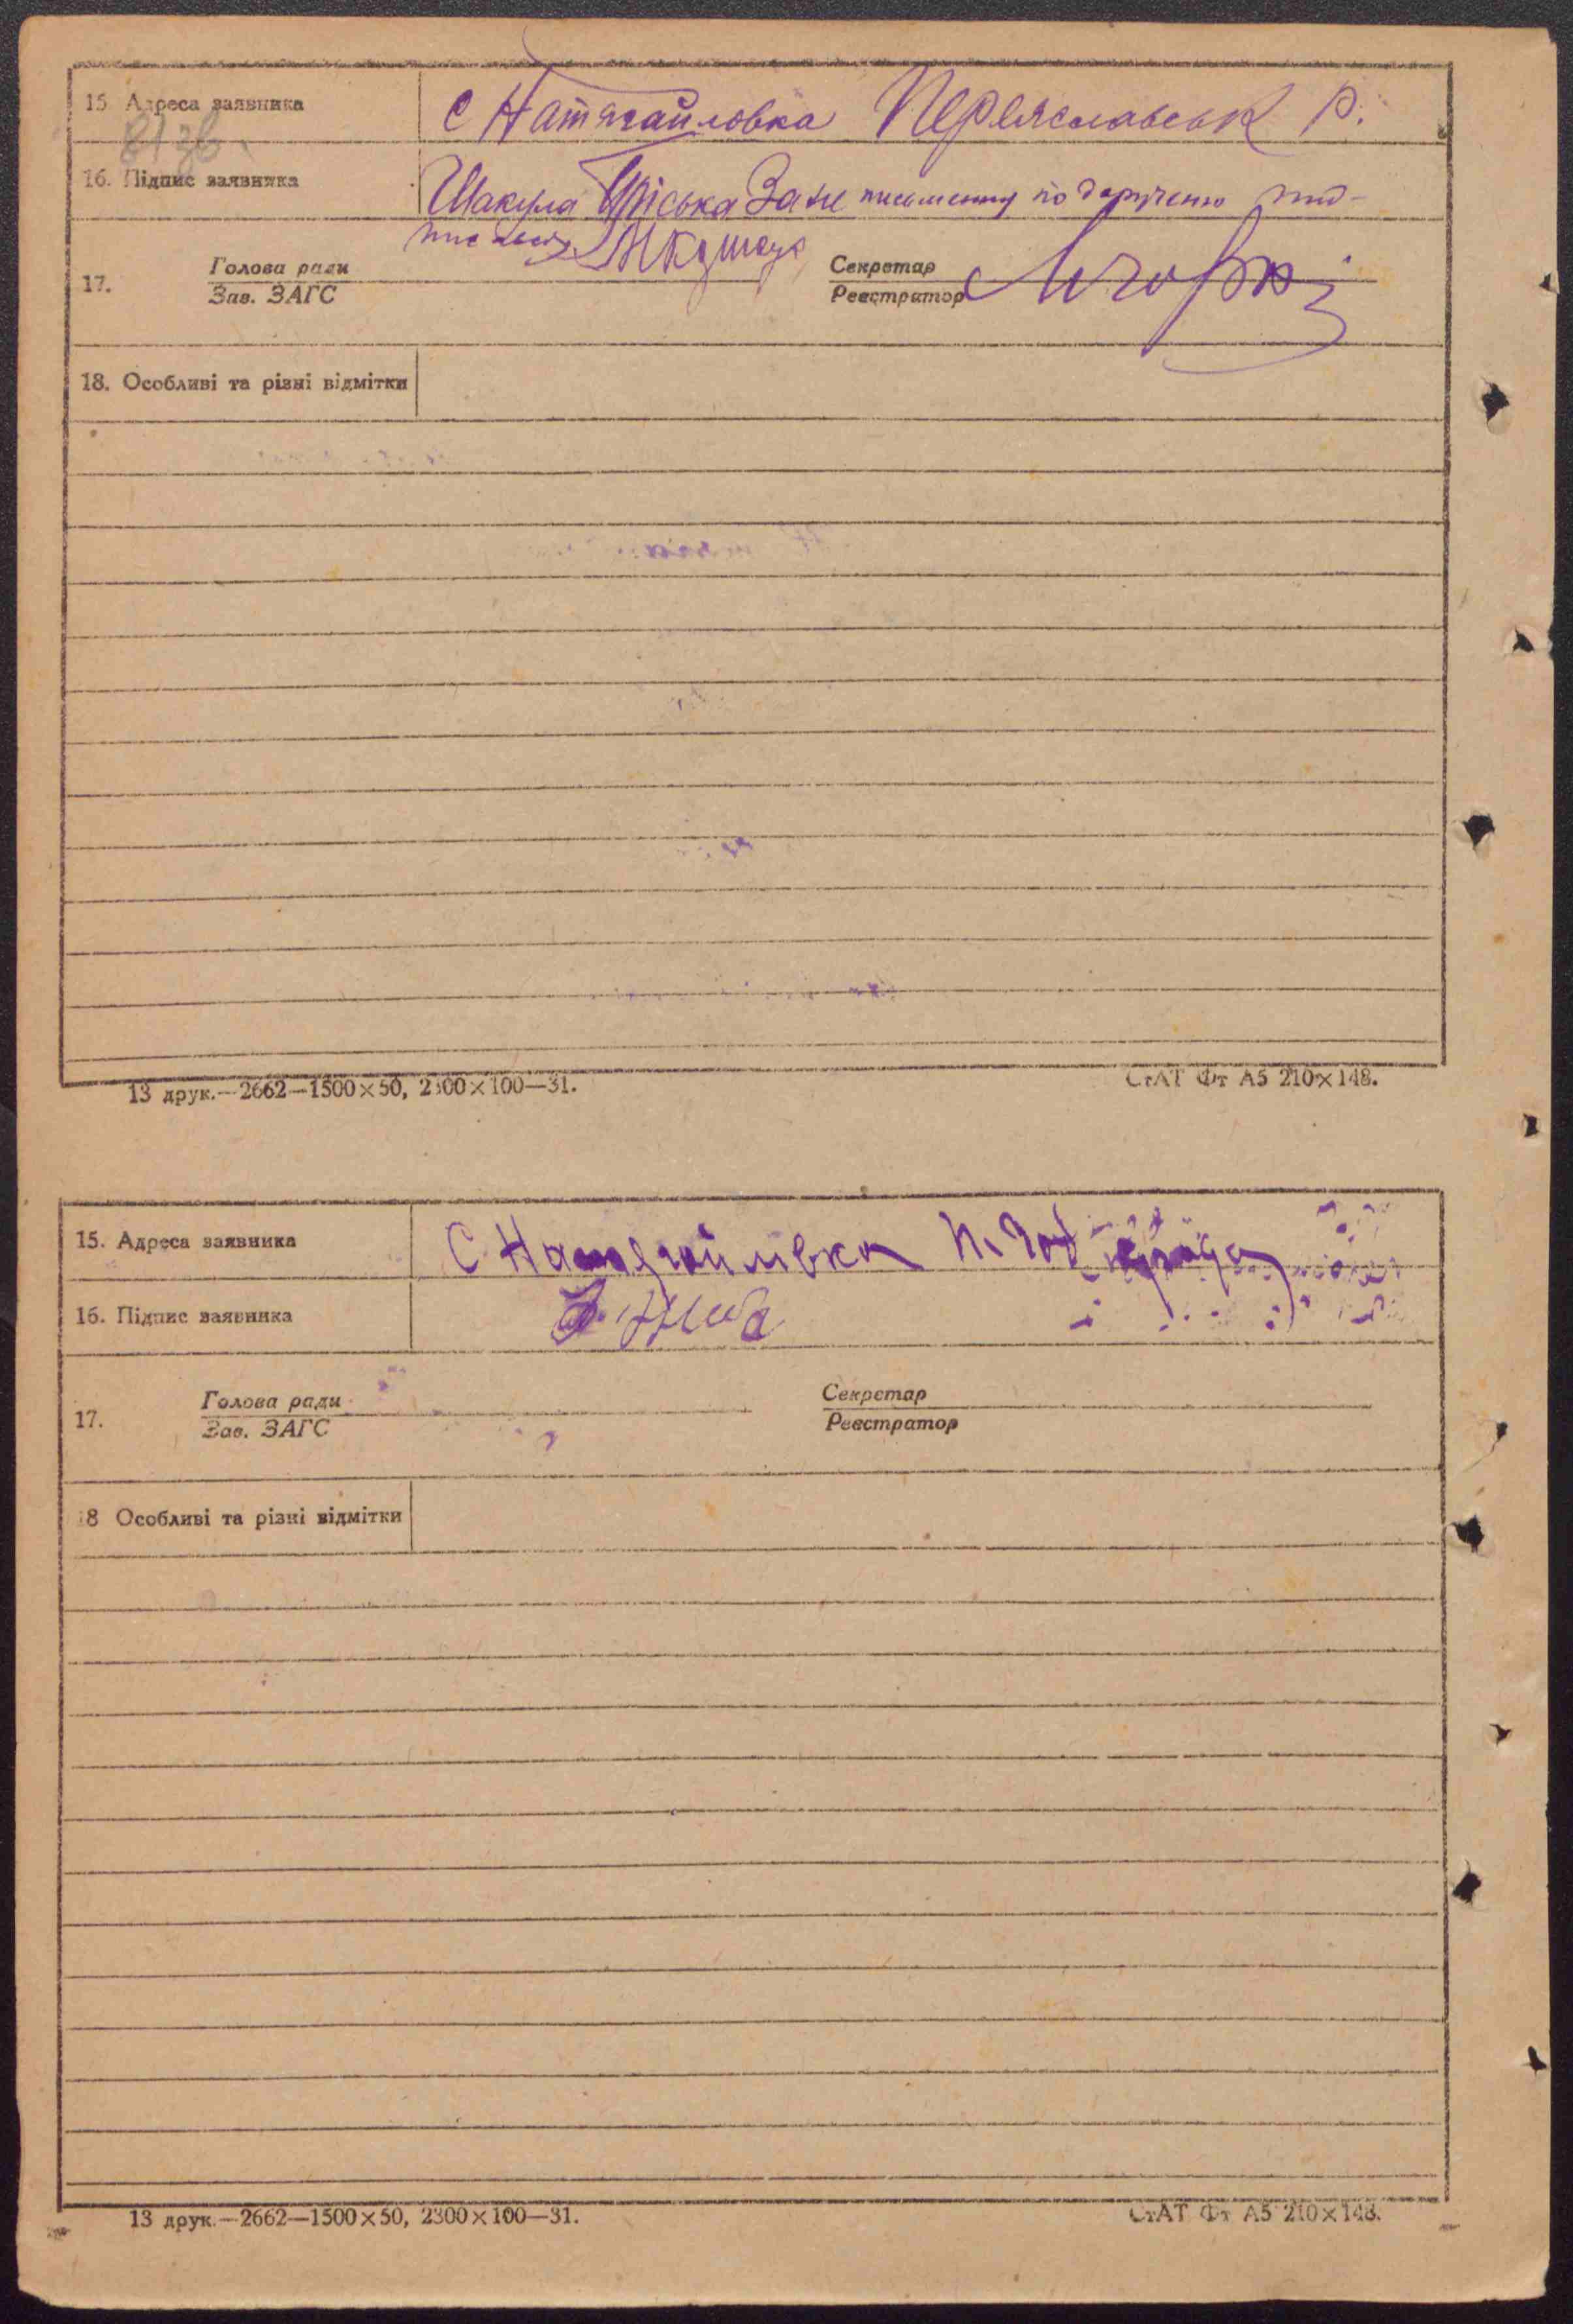 15 Адреса заявника С Натягайловка Переяславськ р.
16. Підпис заявника Шакула Пріська За не письменну по дорученю під-
писався
17. Голова ради Секретар
Зав. ЗАГС Реєстратор
18. Особливі та різні відмітки
13 друк.—2662—1500×50, 2300×100—31. СтАТ Фт А5 210×148.
15. Адреса заявника С Натягайлівка
16. Підпис заявника
17. Голова ради Секретар
Зав. ЗАГС Реєстратор
18 Особливі та різні відмітки
13 друк.—2662—1500×50, 2300×100—31. СтАТ Фт А5 210×148.